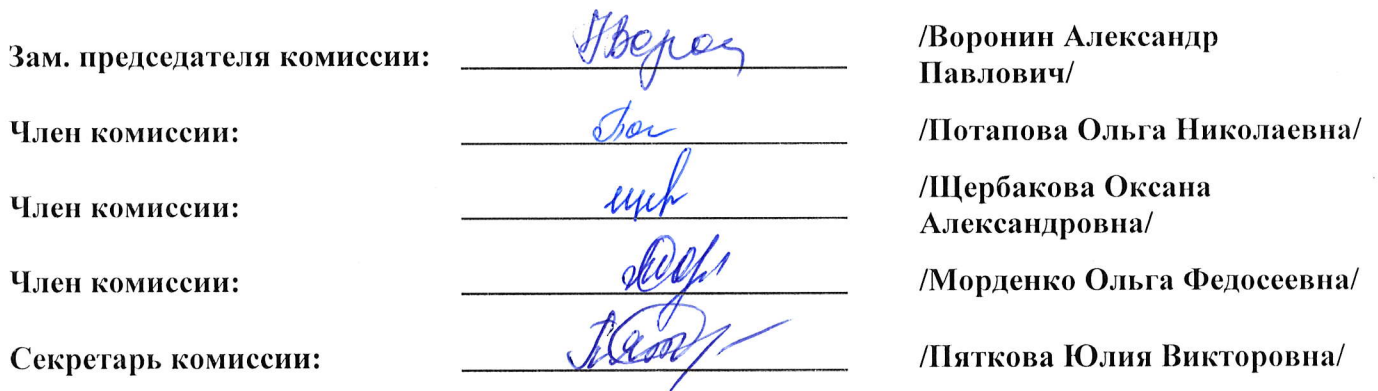 Зам. председателя комиссии: /Воронин Александр
Павлович/
Член комиссии: /Потапова Ольга Николаевна/
Член комиссии: /Щербакова Оксана
Александровна/
Член комиссии: /Морденко Ольга Федосеевна/
Секретарь комиссии: /Пяткова Юлия Викторовна/